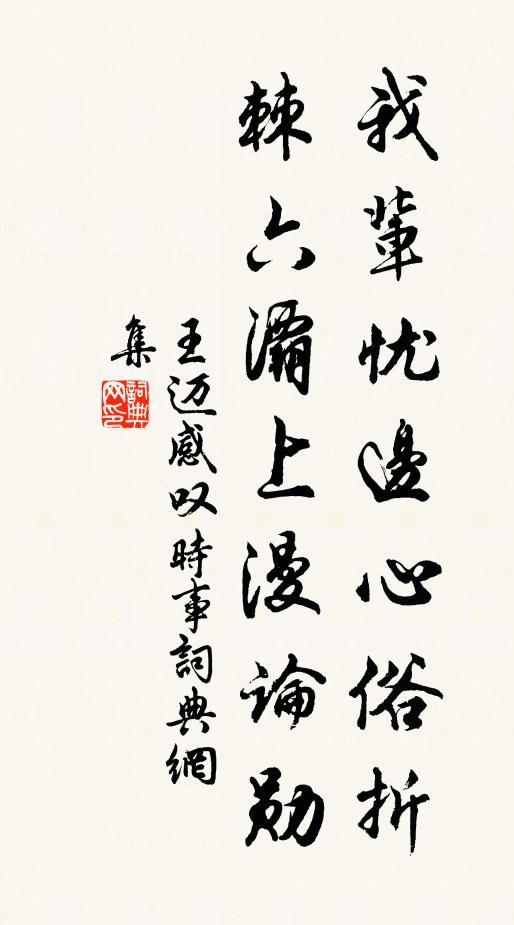 我輩忧邊心俗折
棘六灞上漫論勛
王迈感叹時事詞典網
集
詞典网印